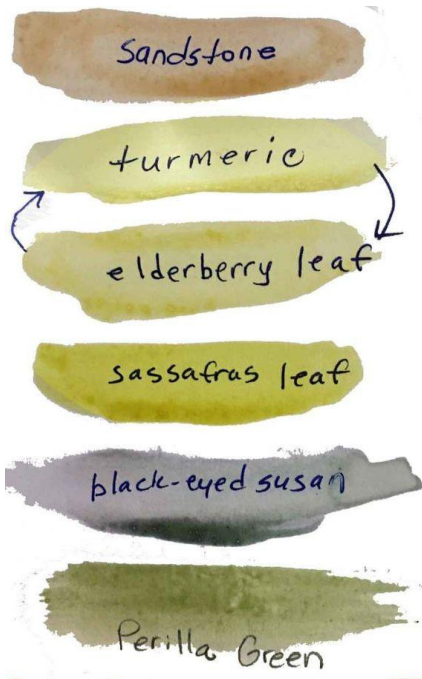 Sandstone
turmeric
elderberry leaf
sassafras leaf
black-eyed susan
Perilla Green